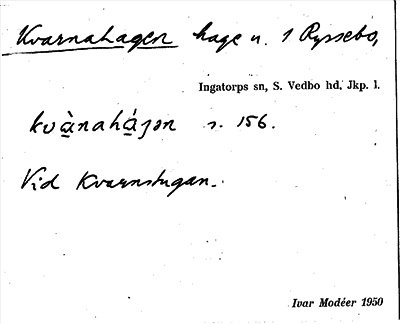 Kvarnahagen hage u. 1 Ryssebo,
Ingatorps sn, S. Vedbo hd, Jkp. l.
kvànaháʒən s. 156.
Vid Kvarnstugan.
Ivar Modéer 1950